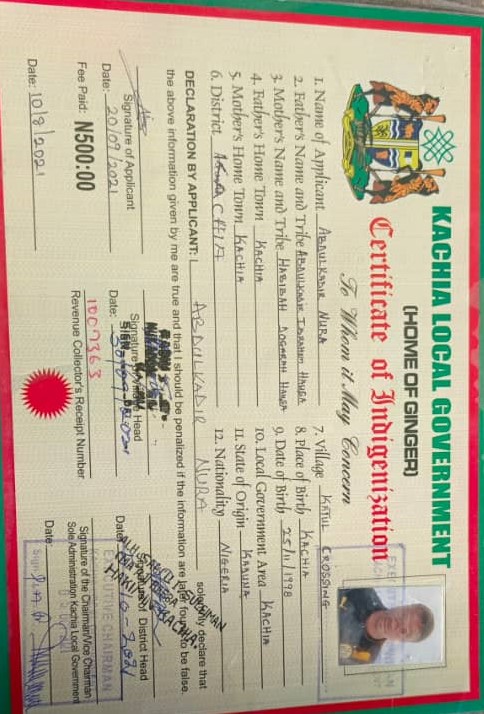 KACHIA LOCAL GOVERNMENT
(HOME OF GINGER)
Certificate of Indigenization
To Whom it May Concern
1. Name of Applicant ABDULKADIR NURA
2. Father's Name and Tribe ABDULKADIR IBRAHIM HAUSA
3. Mother's Name and Tribe HABIBAH HAUSA
4. Father's Home Town KACHIA
5. Mother's Home Town KACHIA
6. District KACHIA
7. Village KATUL CROSSING
8. Place of Birth KACHIA
9. Date of Birth 25/11/1998
10. Local Government Area KACHIA
11. State of Origin KADUNA
12. Nationality NIGERIA
DECLARATION BY APPLICANT: I ABDULKADIR NURA solemnly declare that
the above information given by me are true and that I should be penalized if the information are later found to be false.
Signature of Applicant
Date: 20/09/2021
Signature of Village Head
Date:
ALH. SULEIMAN
HAKIMIN KACHIA.
Signature of District Head
Date:
Fee Paid: N500:00
1007363
Revenue Collector's Receipt Number
EXECUTIVE CHAIRMAN
Signature of the Chairman/Vice Chairman
Sole Administration Kachia Local Government
Date: 10/8/2021
Date: